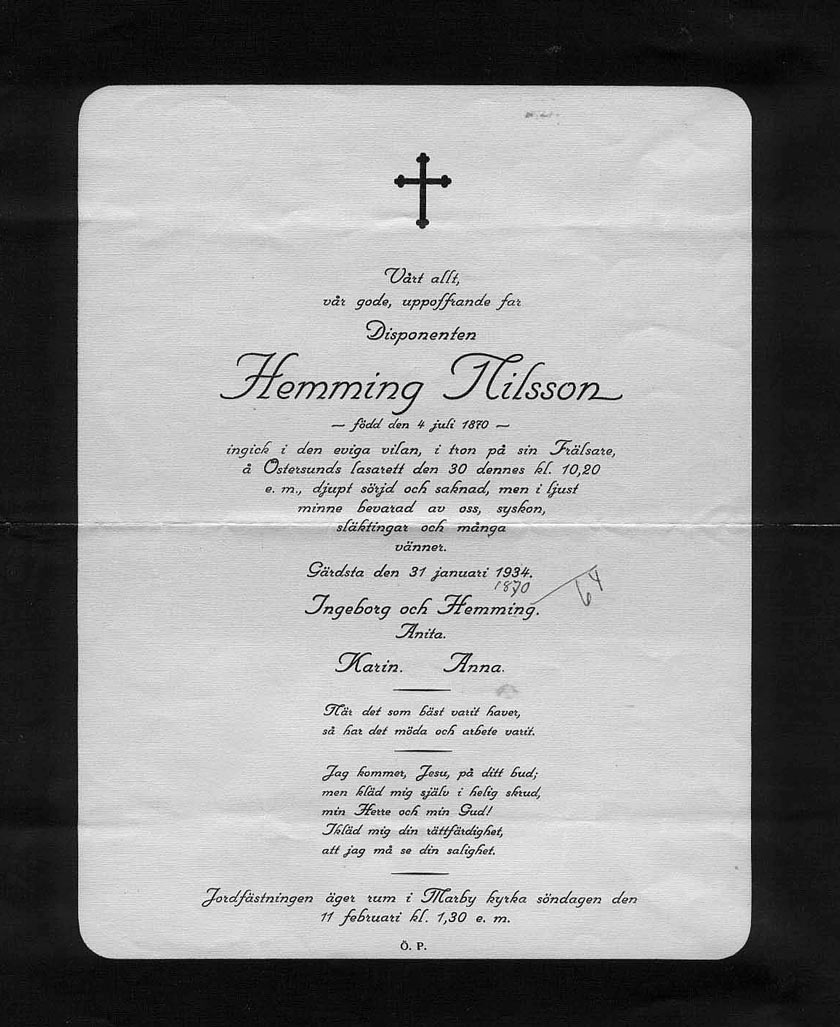 Vårt allt,
vår gode, uppoffrande far
Disponenten
Hemming Nilsson
— född den 4 juli 1870 —
ingick i den eviga vilan, i tron på sin Frälsare,
å Östersunds lasarett den 30 dennes kl. 10,20
e. m., djupt sörjd och saknad, men i ljust
minne bevarad av oss, syskon,
släktingar och många
vänner.
Gärdsta den 31 januari 1934.
1870
64
Ingeborg och Hemming.
Anita.
Karin. Anna.
När det som bäst varit haver,
så har det möda och arbete varit.
Jag kommer, Jesu, på ditt bud;
men kläd mig själv i helig skrud,
min Herre och min Gud!
Ikläd mig din rättfärdighet,
att jag må se din salighet.
Jordfästningen äger rum i Marby kyrka söndagen den
11 februari kl. 1,30 e. m.
Ö. P.